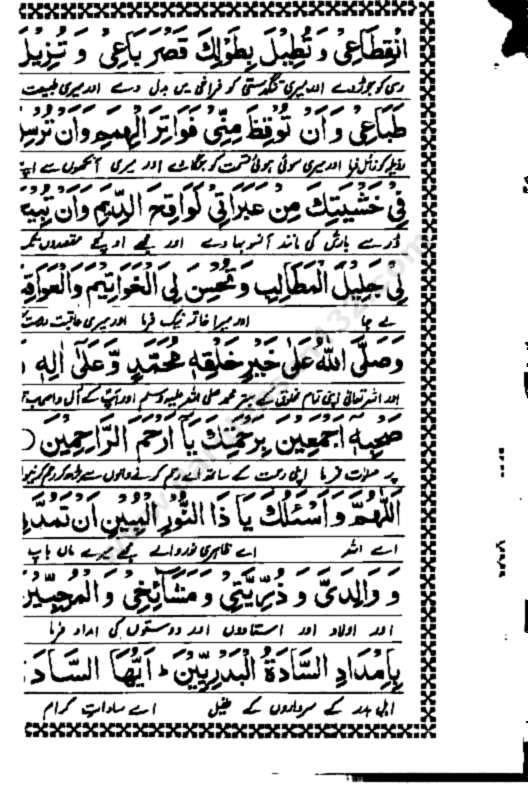 انْقِطَاعِىْ وَ تُطِيْلَ بِطَوْلِكَ قَصْرَ بَاعِىْ وَ تُزِيْلَ
رسی کو جوڑ دے اور میری تنگدستی کو فراخی میں بدل دے اور میری طبیعت
طَبَاعِىْ وَ اَنْ تُوْقِظَ مِنِّىْ فَوَاتِرَ الْهِمَمِ وَ اَنْ تُرْسِلَ
اور میری سوئی ہوئی ہمت کو جگا دے اور میری آنکھوں سے اپنے
فِىْ خَشْيَتِكَ مِنْ عَبَرَاتِىْ لَوَاقِحَ الدِّيَمِ وَ اَنْ
ڈر سے بارش کی مانند آنسو بہا دے اور مجھے اونچے مقصدوں تک
لِىْ جَلِيْلَ الْمَطَالِبِ وَ تُحْسِنَ لِىَ الْخَوَاتِيْمَ وَالْعَوَاقِبَ
لے جا اور میرا خاتمہ نیک فرما اور میری عاقبت
وَصَلَّى اللهُ عَلٰى خَيْرِ خَلْقِهٖ مُحَمَّدٍ وَّ عَلٰى اٰلِهٖ وَ
اور اللہ تعالیٰ اپنی تمام مخلوق کے بہتر محمد صلی اللہ علیہ وسلم اور آپ کے آل و اصحاب
صَحْبِهٖ اَجْمَعِيْنَ بِرَحْمَتِكَ يَآ اَرْحَمَ الرَّاحِمِيْنَ
پر صلوات فرما اپنی رحمت کے ساتھ اے رحم کرنے والوں سے بڑھ کر رحم کرنیوالے
اَللّٰهُمَّ وَ اَسْئَلُكَ يَا ذَا النُّوْرِ الْمُبِيْنِ اَنْ تَمُدَّنِىْ
اے اللہ اے ظاہری نور والے مجھے میرے ماں باپ
وَ وَالِدَىَّ وَ ذُرِّيَّتِىْ وَ مَشَآئِخِىْ وَ الْمُحِبِّيْنَ
اور اولاد اور استادوں اور دوستوں کی امداد فرما
بِاِمْدَادِ السَّادَةِ الْبَدْرِيِّيْنَ اَيُّهَا السَّادَةُ
اہل بدر کے سرداروں کے طفیل اے سادات کرام